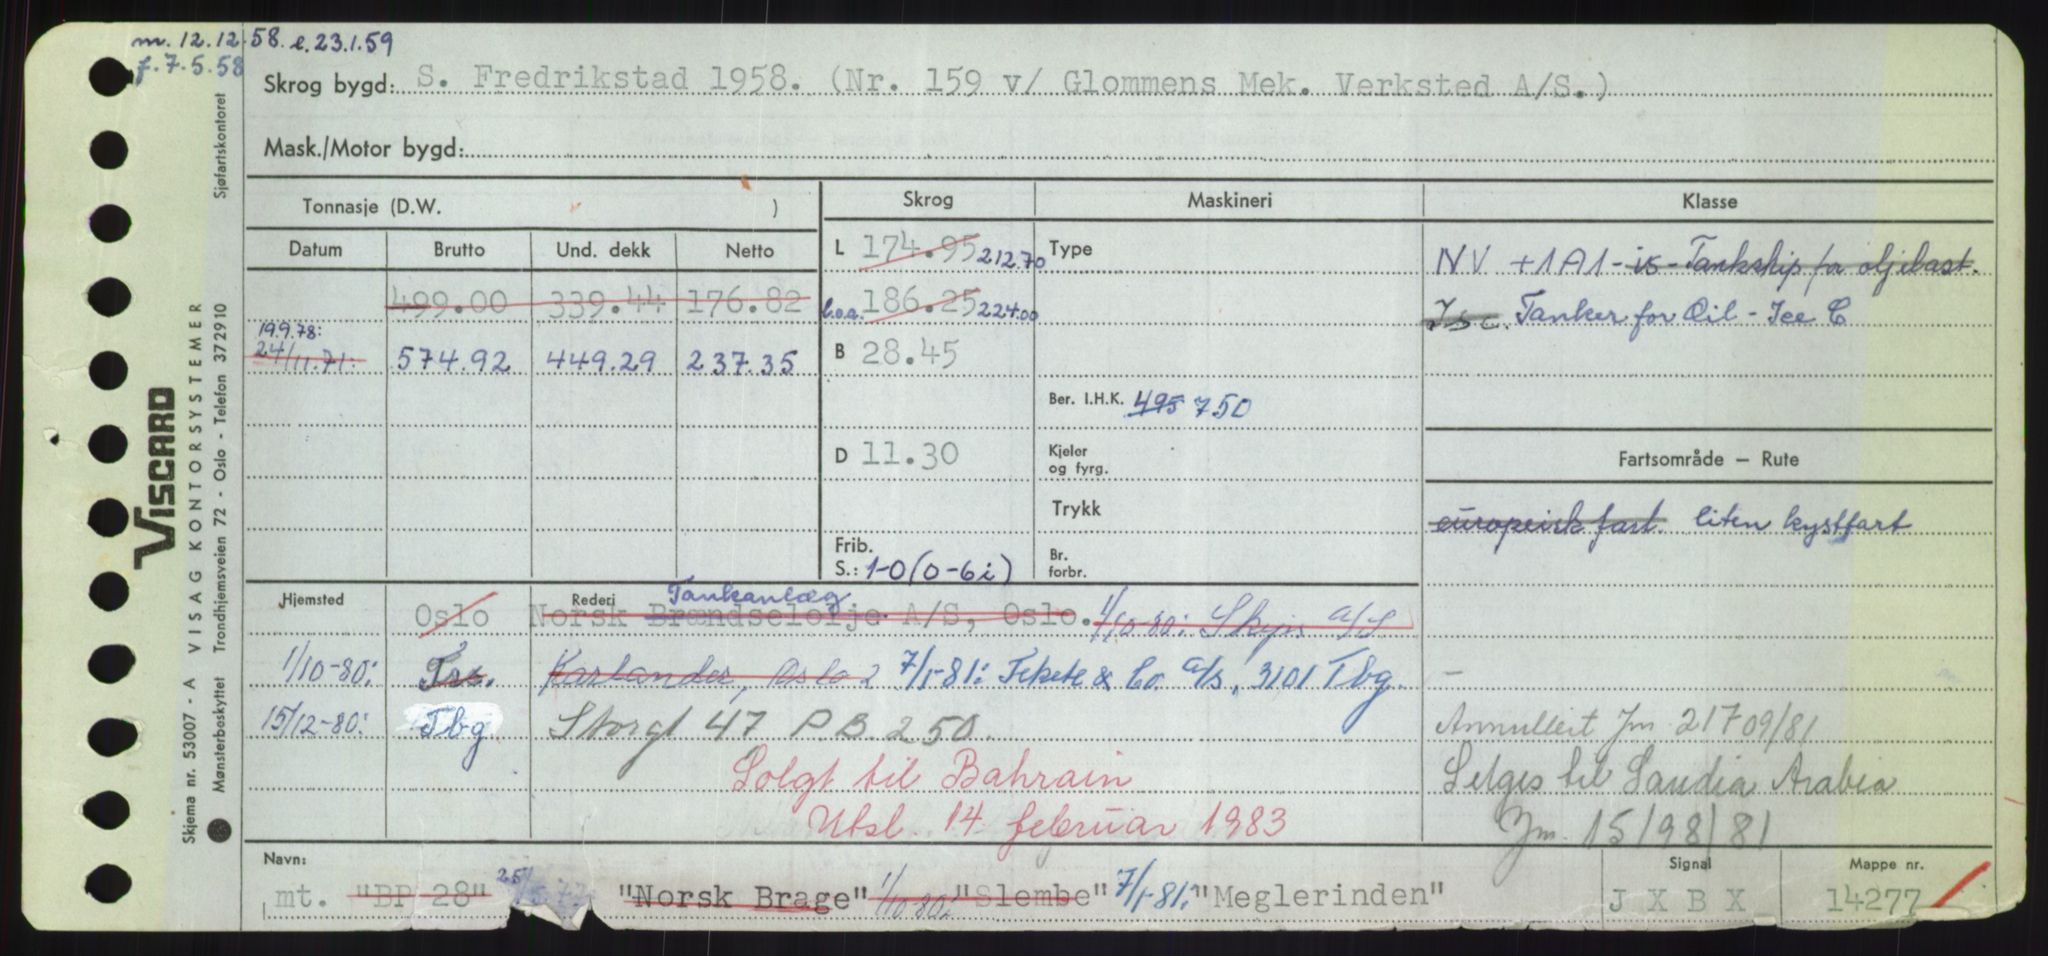 m. 12.12.58. e. 23.1.59
f. 7.5.58
Skrog bygd: S. Fredrikstad 1958. (Nr. 159 v/ Glommens Mek. Verksted A/S.)
Mask./Motor bygd:
Tonnasje (D.W. )
Skrog
Maskineri
Klasse
Datum Brutto Und. dekk Netto
499.00 339.44 176.82
19.9.78:
24/11.71: 574.92 449.29 237.35
L 174.95 212.70
l.o.a. 186.25 224.00
B 28.45
D 11.30
Frib.
S.: 1-0 (0-6i)
Type
Ber. I.H.K. 495 750
Kjeler
og fyrg.
Trykk
Br.
forbr.
NV +1A1 - is - Tankship for oljelast.
Is C. Tanker for Oil - Ice C
Fartsområde — Rute
europeisk fart. liten kystfart
Hjemsted Oslo
Rederi Tankanlæg
Norsk Brændselolje A/S, Oslo. 1/10-80: Skips A/S
1/10-80: Trs. Karlander, Oslo 2 7/1-81: Tekete & Co. A/S, 3101 Tbg.
15/12-80: Tbg Storgt 47 P.B. 250.
Solgt til Bahrain
Utsl. 14. februar 1983
—
Annullert Jm 21709/81
Selges til Saudia Arabia
Jm. 15198/81
Navn:
mt. "BP 28" "Norsk Brage" 1/10 80: "Slembe" 7/1-81: "Meglerinden"
Signal
J X B X
Mappe nr.
14277
VISCARD
VISAG KONTORSYSTEMER
Skjema nr. 53007 - A
Mønsterbeskyttet Trondhjemsveien 72 - Oslo - Telefon 372910 Sjøfartskontoret